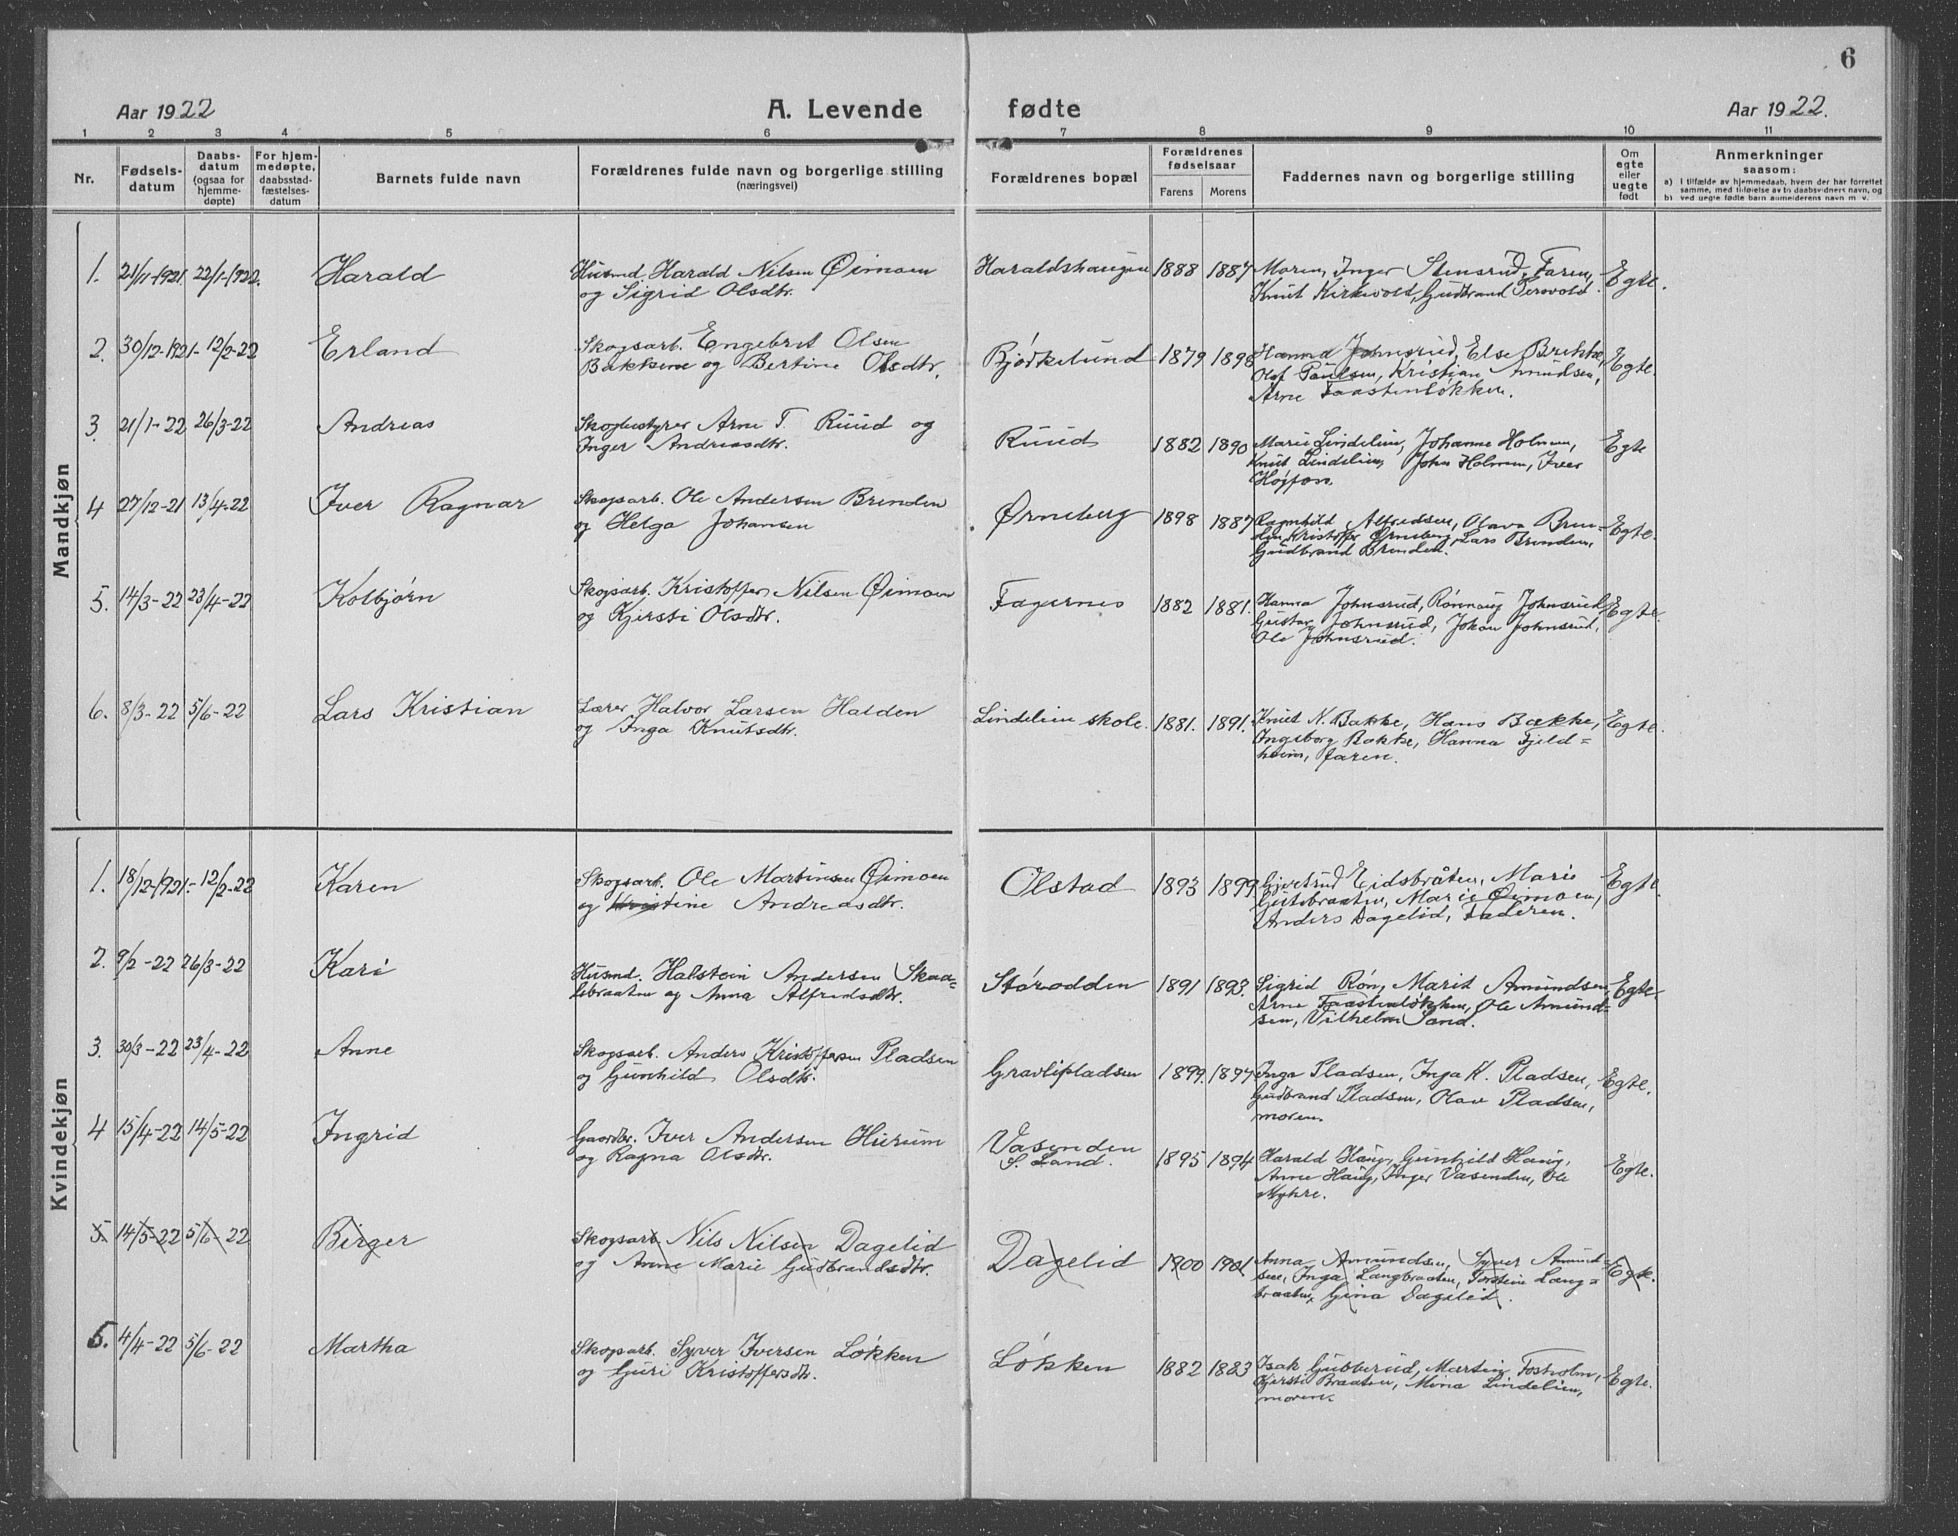 6
Aar 1922
A. Levende fødte
Aar 1922.
1 2 3 4 5 6 7 8 9 10 11
Nr.
Fødsels-
datum
Daabs-
datum
(ogsaa for
hjemme-
døpte)
For hjem-
medøpte,
daabsstad-
fæstelses-
datum
Barnets fulde navn
Forældrenes fulde navn og borgerlige stilling
(næringsvei)
Forældrenes bopæl
Forældrenes
fødselsaar
Farens Morens
Faddernes navn og borgerlige stilling
Om
egte
eller
uegte
født
Anmerkninger
saasom:
a) i tilfælde av hjemmedaab, hvem der har forrettet
samme, med tilføielse av to daabsvidners navn, og
b) ved uegte fødte barn anmelderens navn m. v.
Mandkjøn
1. 21/11-1921. 22/1-1922. Harald
Husmd Harald Nilsen Øimoen
og Sigrid Olsdtr.
Haraldshaugen 1888 1887
Moren, Inger Stensrud, Faren,
Knut Kirkevold, Gudbrand Tersvold.
Egte.
2. 30/12-1921- 12/2-22 Erland
Skogsarb. Engebret Olsen
Bakkene og Bertine Olsdtr.
Bjørkelund 1879 1898
Hanna Johnsrud, Else Brekke,
Olof Paulsen, Kristian Amundsen,
Arne Faastenløkken.
Egte.
3. 21/1-22 26/3-22 Andreas
Skogbestyrer Arne T. Ruud og
Inger Andreasdtr.
Ruud 1882 1890
Marie Lindelien, Johanne Holmen,
Knut Lindelien, John Holmen, Iver
Egte
4 27/12-21 13/4-22 Iver Ragnar
Skogsarb. Ole Andersen Brenden
og Helga Johansen
Ørneberg 1898 1887
Ragnhild Alfredsen, Olava Bren-
den, Kristoffer Ørneberg, Lars Brenden,
Gudbrand Brenden.
Egte.
5. 14/3-22 23/4-22 Kolbjørn
Skogsarb. Kristoffer Nilsen Øimoen
og Kjersti Olsdtr.
Fagernes 1882 1881.
Hanna Johnsrud, Rønnaug Johnsrud,
Gustav Johnsrud, Johan Johnsrud,
Ole Johnsrud.
Egte.
6. 8/3-22 5/6-22 Lars Kristian
Lærer Halvor Larsen Halden
og Inga Knutsdtr.
Lindelien skole. 1881. 1891.
Knut N. Bakke, Hans Bakke,
Ingeborg Bakke, Hanna Fjeld=
heim, faren.
Egte.
Kvindekjøn
1. 18/12-1921.- 12/2-22 Karen
Skogsarb. Ole Martinsen Øimoen
og Kristine Andreasdtr.
Olstad 1893 1899
Gjertrud Eidsbråten, Marie
Marie Øimoen,
Anders Dagelid, Faderen.
Egte.
2. 9/2-22 26/3-22 Kari
Husmd. Halstein Andersen Skaa=
lebraaten og Anna Alfredsdtr.
Størodden 1891 1893.
Sigrid Røn, Marit Amundsen,
Arne Faastenløkken, Ole Amund=
sen, Vilhelm Sand.
Egte.
3. 30/3-22 23/4-22 Anne
Skogsarb. Anders Kristoffersen Pladsen
og Gunhild Olsdtr.
Gravlipladsen 1899. 1897
Inga Pladsen, Inga K. Pladsen,
Gudbrand Pladsen, Olav Pladsen,
moren.
Egte.
4 15/4-22 14/5-22 Ingrid
Gaardbr. Iver Andersen Hurum
og Ragna Olsdtr.
Vasenden
S. Land. 1895 1894
Harald Haug, Gunhild Haug,
Anne Haug, Inger Vasenden, Ole
Myhre.
Egte.
5. 14/5-22 5/6-22 Birger
Skogsarb. Nils Nilsen Dagelid
og Anne Marie Gudbrandsdtr.
Dagelid 1900 1901
Anna Amundsen, Syver Amund-
sen, Inga Langbraaten, Torstein Lang=
braaten, Gina Dagelid.
Egte.
5. 4/4-22 5/6-22 Martha
Skogsarb. Syver Iversen Løkken
og Guri Kristoffersdtr.
Løkken 1882 1883
Isak Gubberud, Martin Fosholm,
Kjersti Braaten, Mina Lindelien,
moren.
Egte.